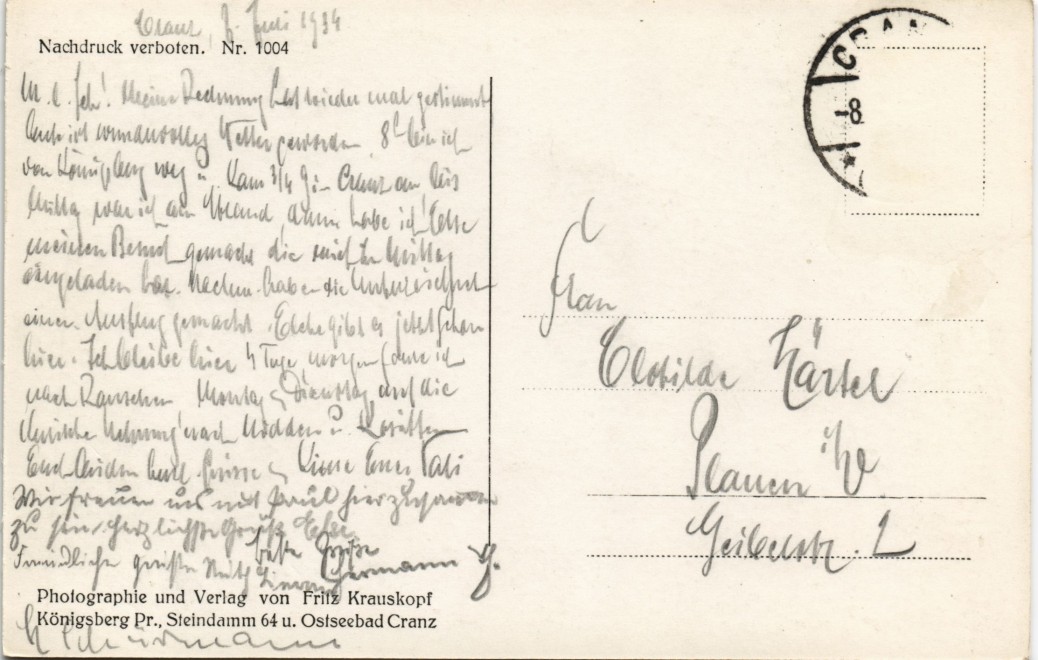 Cranz, 7. Juli 1934
Nachdruck verboten. Nr. 1004
M. l. Meine Rechnung hat wieder mal gestimmt
Auch ist wundervolles Wetter geworden 8 bin ich
von Königsberg weg u. kam 3/4 9 in Cranz an Bis
Mittag war ich am Strand, dann habe ich Else
meinen Besuch gemacht die mich zu Mittag
eingeladen hat. Nachm. haben die Unterzeichneten
einen Ausflug gemacht. gibt es jetzt schon
hier. Ich bleibe hier Tage, morgen fahre ich
nach Rauschen Montag u Dienstag auf die
Kurische Nehrung nach Nidden u. Rositten
Euch beiden herzl. Grüsse u Küsse Euer Vati
Wir freuen uns mit Paul hier zusammen
zu sein. Herzlichste Grüsse Else
Beste Grüsse
Freundliche Grüsse Hermann
Photographie und Verlag von Fritz Krauskopf
Königsberg Pr., Steindamm 64 u. Ostseebad Cranz
CRAN
-8
Frau
Clotilde Härtel
Plauen i/V
Geibelstr. 2